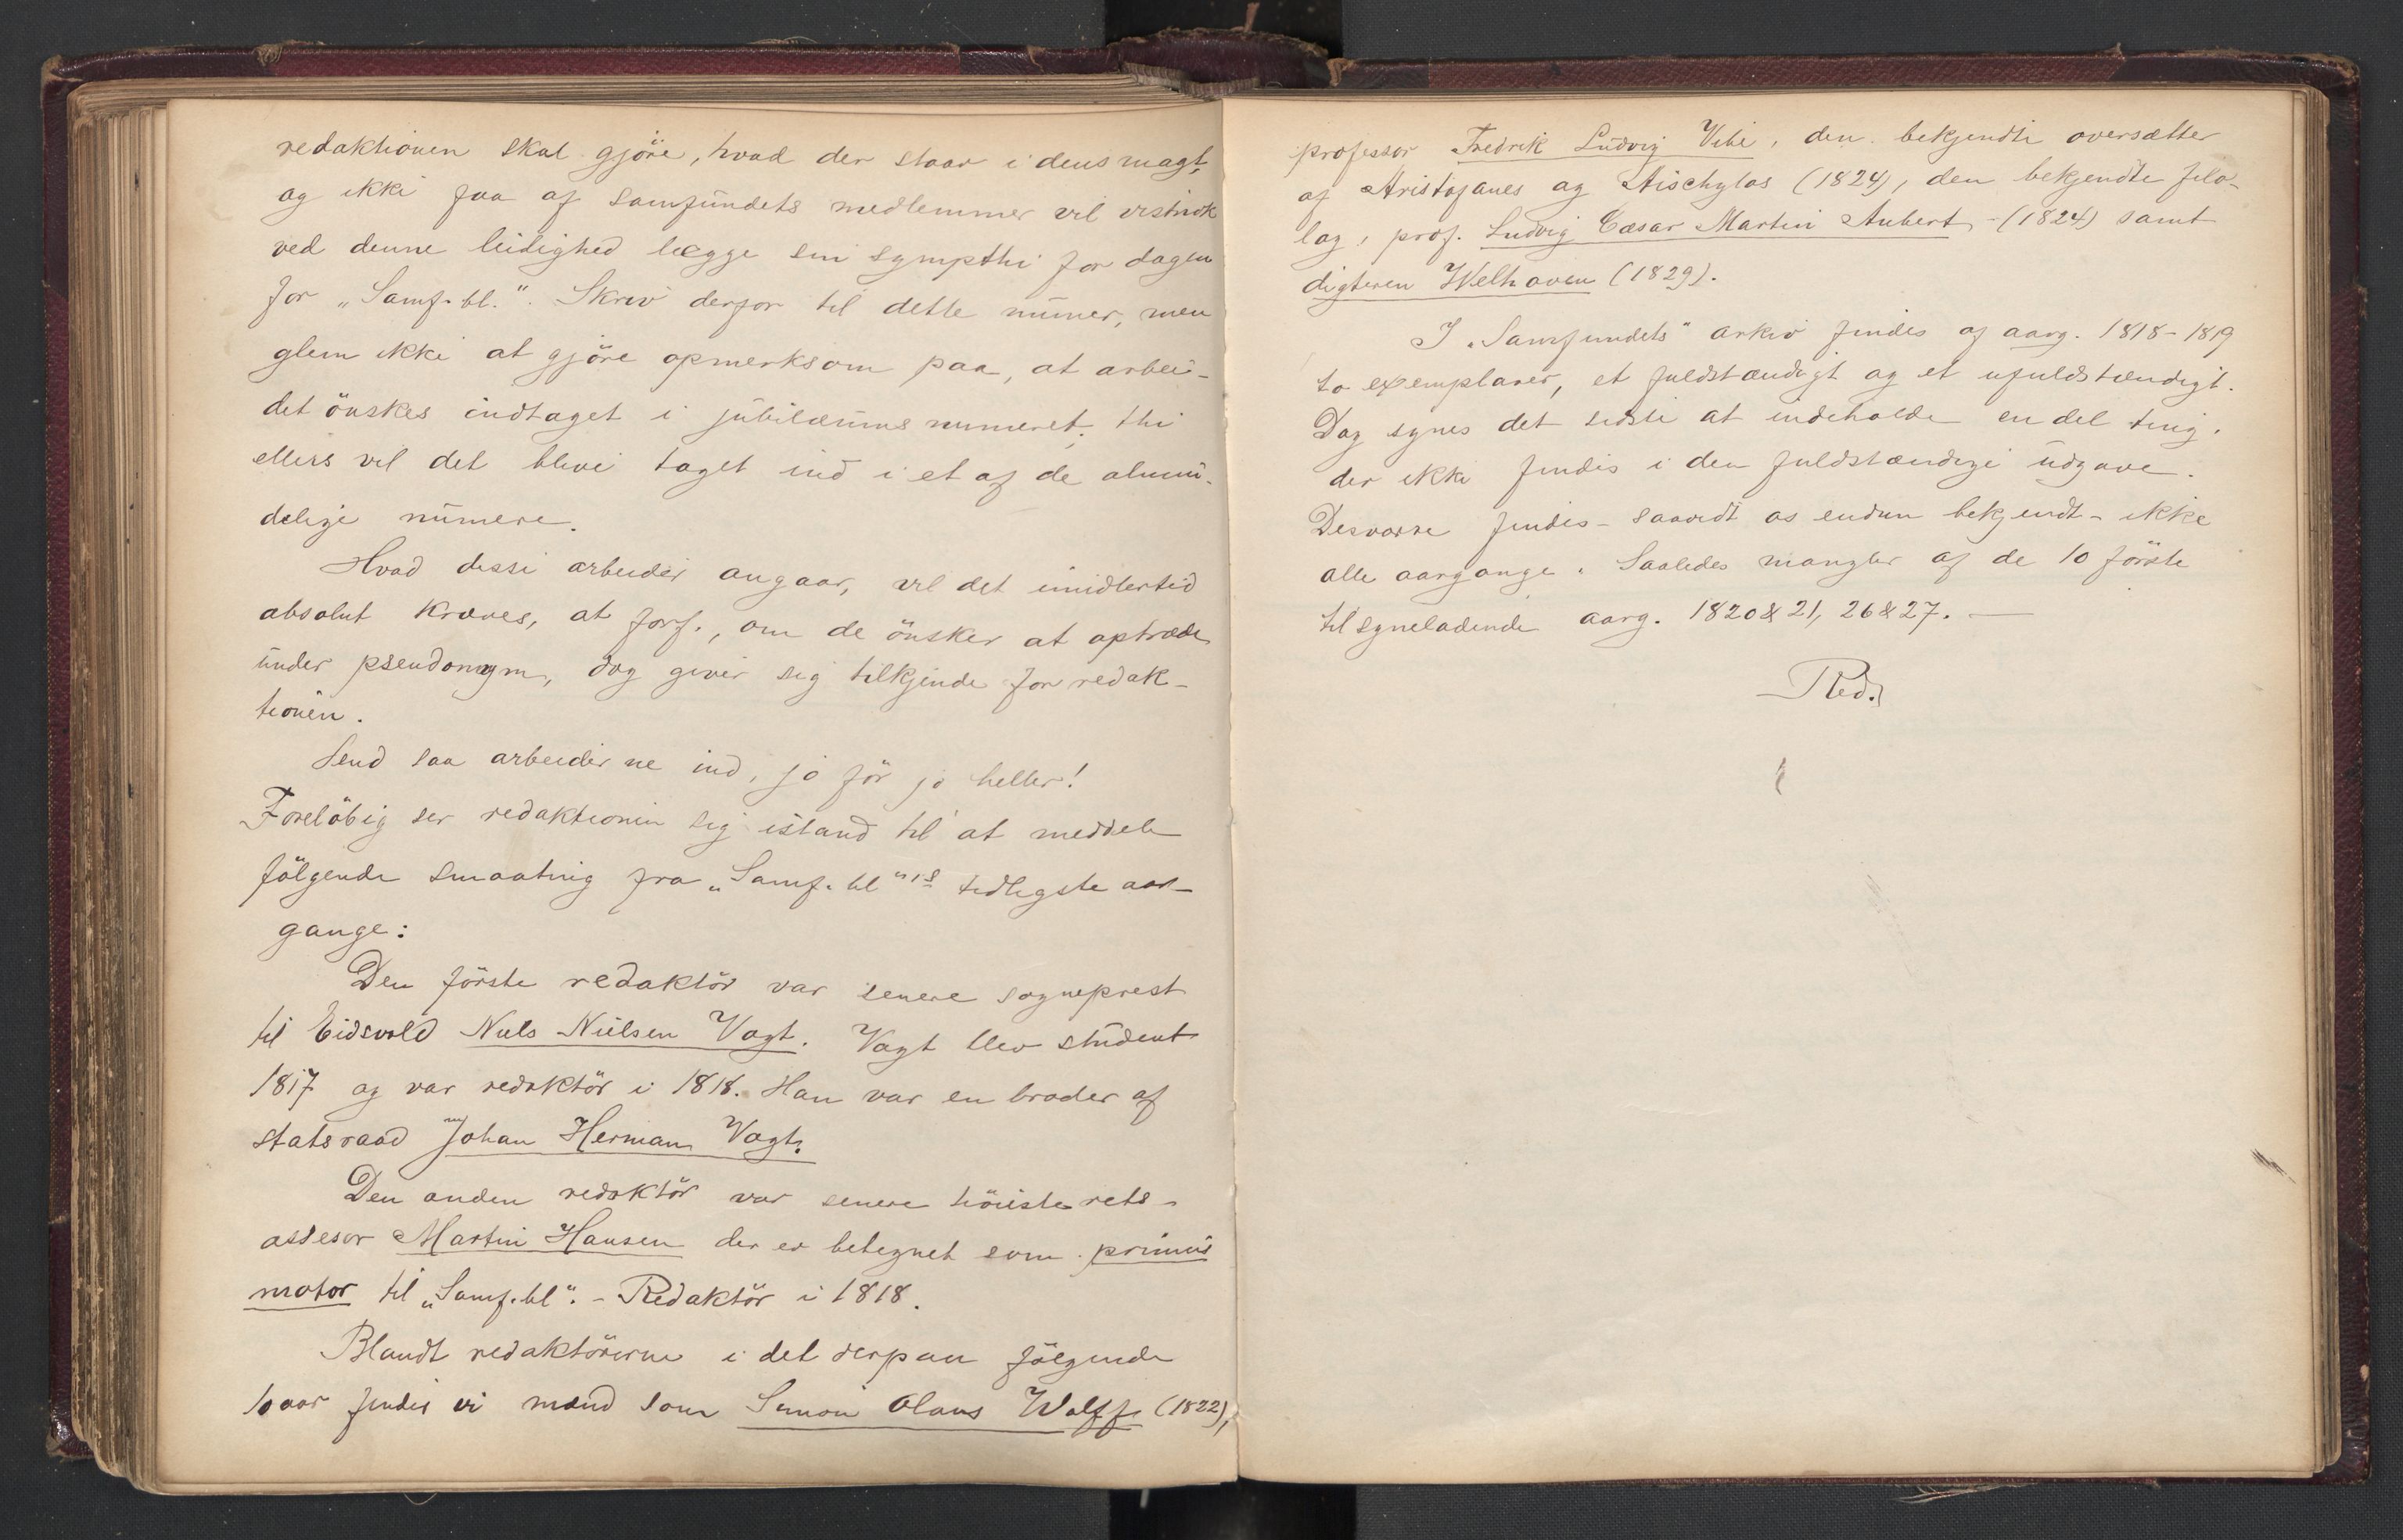 redaktionen skal gjöre, hvad der staar i dens magt,
og ikke faa af samfundets medlemmer vil vistnok
ved denne leilighed lægge sin sympthi for dagen
for „Samf.bl.". Skriv derfor til dette numer, men
glem ikke at gjöre opmerksom paa, at arbei-
det önskes indtaget i jubilæums numeret; thi
ellers vil det blive taget ind i et af de almin-
delige numere.
Hvad disse arbeider angaar, vil det imidlertid
absolut kræves, at forf., om de önsker at optræde
under pseudonym, dog giver sig tilkjende for redak-
tionen.
Send saa arbeiderne ind, jo för jo heller!
Foreløbig ser redaktionen sig istand til at meddele
fölgende smaating fra „Samf.bl"'s tidligste aar-
gange:
Den förste redaktör var senere sogneprest
til Eidsvold Niels Nielsen Vogt. Vogt blev student
1817 og var redaktör i 1818. Han var en broder af
statsraad Johan Herman Vogt.
Den anden redaktör var senere höiesterets-
assesor Martin Hansen der er betegnet som primus
motor til „Samf.bl". - Redaktör i 1818.
Blandt redaktörerne i det derpaa fölgende
10 aar findes vi mænd som Simon Olaus Wolff (1822),
professor Fredrik Ludvig Vibe, den bekjendte oversætter
af Aristofanes og Aischylos (1824), den bekjendte filo-
log, prof. Ludvig Cæsar Martin Aubert (1824) samt
digteren Welhaven (1829).
I „Samfundets" arkiv findes af aarg. 1818-1819
to exemplarer, et fuldstændigt og et ufuldstændigt.
Dog synes det sidste at indeholde en del ting,
der ikke findes i den fuldstændige udgave.
Desværre findes - saavidt os endnu bekjendt - ikke
alle aargange. Saaledes mangler af de 10 förste
tilsyneladende aarg. 1820 & 21, 26 & 27. —
Red.